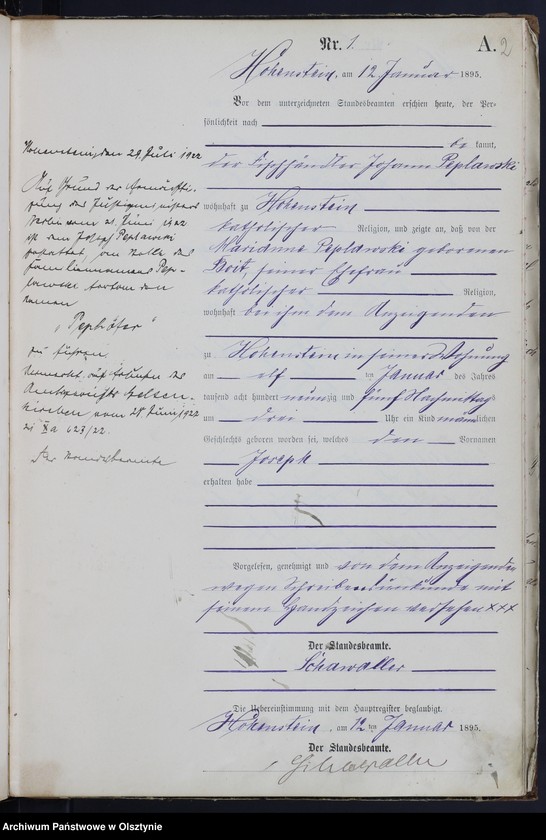 Nr. 1.
A. 2
Hohenstein, am 12 Januar 1895.
Vor dem unterzeichneten Standesbeamten erschien heute, der Per-
sönlichkeit nach
be kannt,
der Fischhändler Johann Peplawski
wohnhaft zu Hohenstein
katholischer Religion, und zeigte an, daß von der
Marianna Peplawski geborenen
Boit, seiner Ehefrau
katholischer Religion,
wohnhaft bei ihm dem Anzeigenden
zu Hohenstein in seiner Wohnung
am elf ten Januar des Jahres
tausend acht hundert neunzig und fünf Nachmittags
um drei Uhr ein Kind männlichen
Geschlechts geboren worden sei, welches den Vornamen
Joseph
erhalten habe
Vorgelesen, genehmigt und von dem Anzeigenden
wegen Schreibensunkunde mit
seinem Handzeichen versehen xxx
Der Standesbeamte.
Schawaller
Die Uebereinstimmung mit dem Hauptregister beglaubigt.
Hohenstein, am 12 ten Januar 1895.
Der Standesbeamte.
Schawaller
Hohenstein, den 29. Juli 1922
Auf Grund der Ermächti-
gung des Justizministers
Berlin vom 21. Juni 1922
ist dem Josef Peplawski
gestattet, an Stelle des
Familiennamens Pep-
lawski fortan den
Namen
"Pephöfer"
zu führen.
Vermerkt auf Ersuchen des
Amtsgerichts Gelsen-
kirchen vom 28 Juni 1922
623/22.
Der Standesbeamte
Archiwum Państwowe w Olsztynie